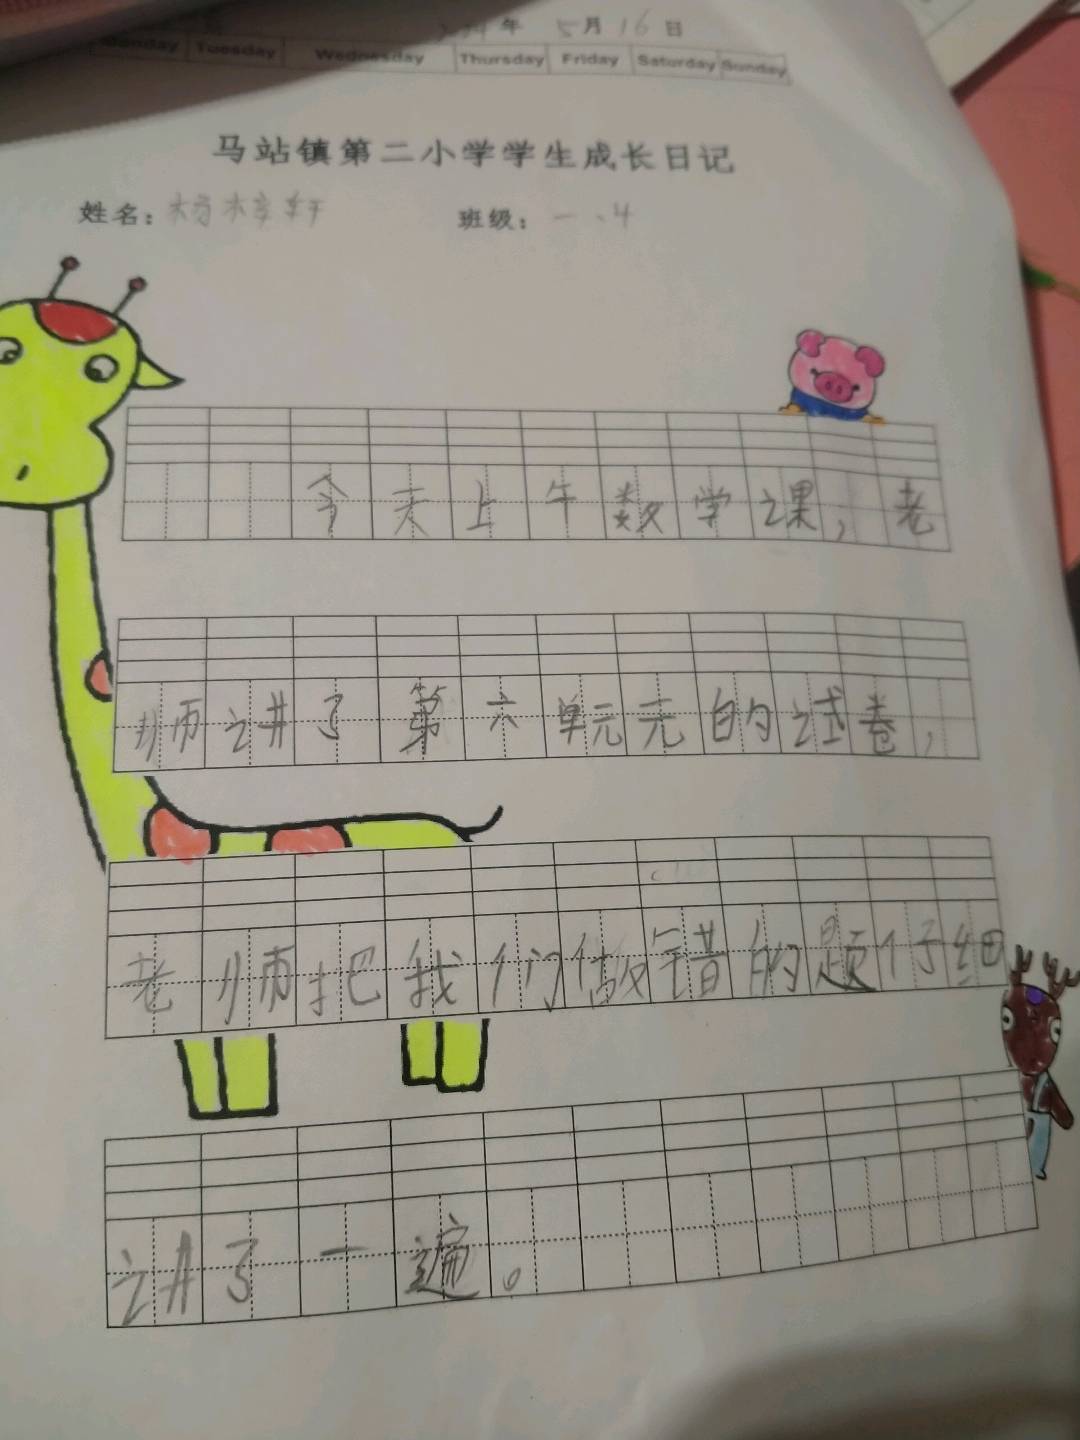 年 5月16日
Monday Tuesday Wednesday Thursday Friday Saturday Sunday
马站镇第二小学学生成长日记
姓名：杨梓轩 班级：一、4
今天上午数学课，老
师讲了第六单元元的试卷，
老师把我们做错的题仔细
讲了一遍。